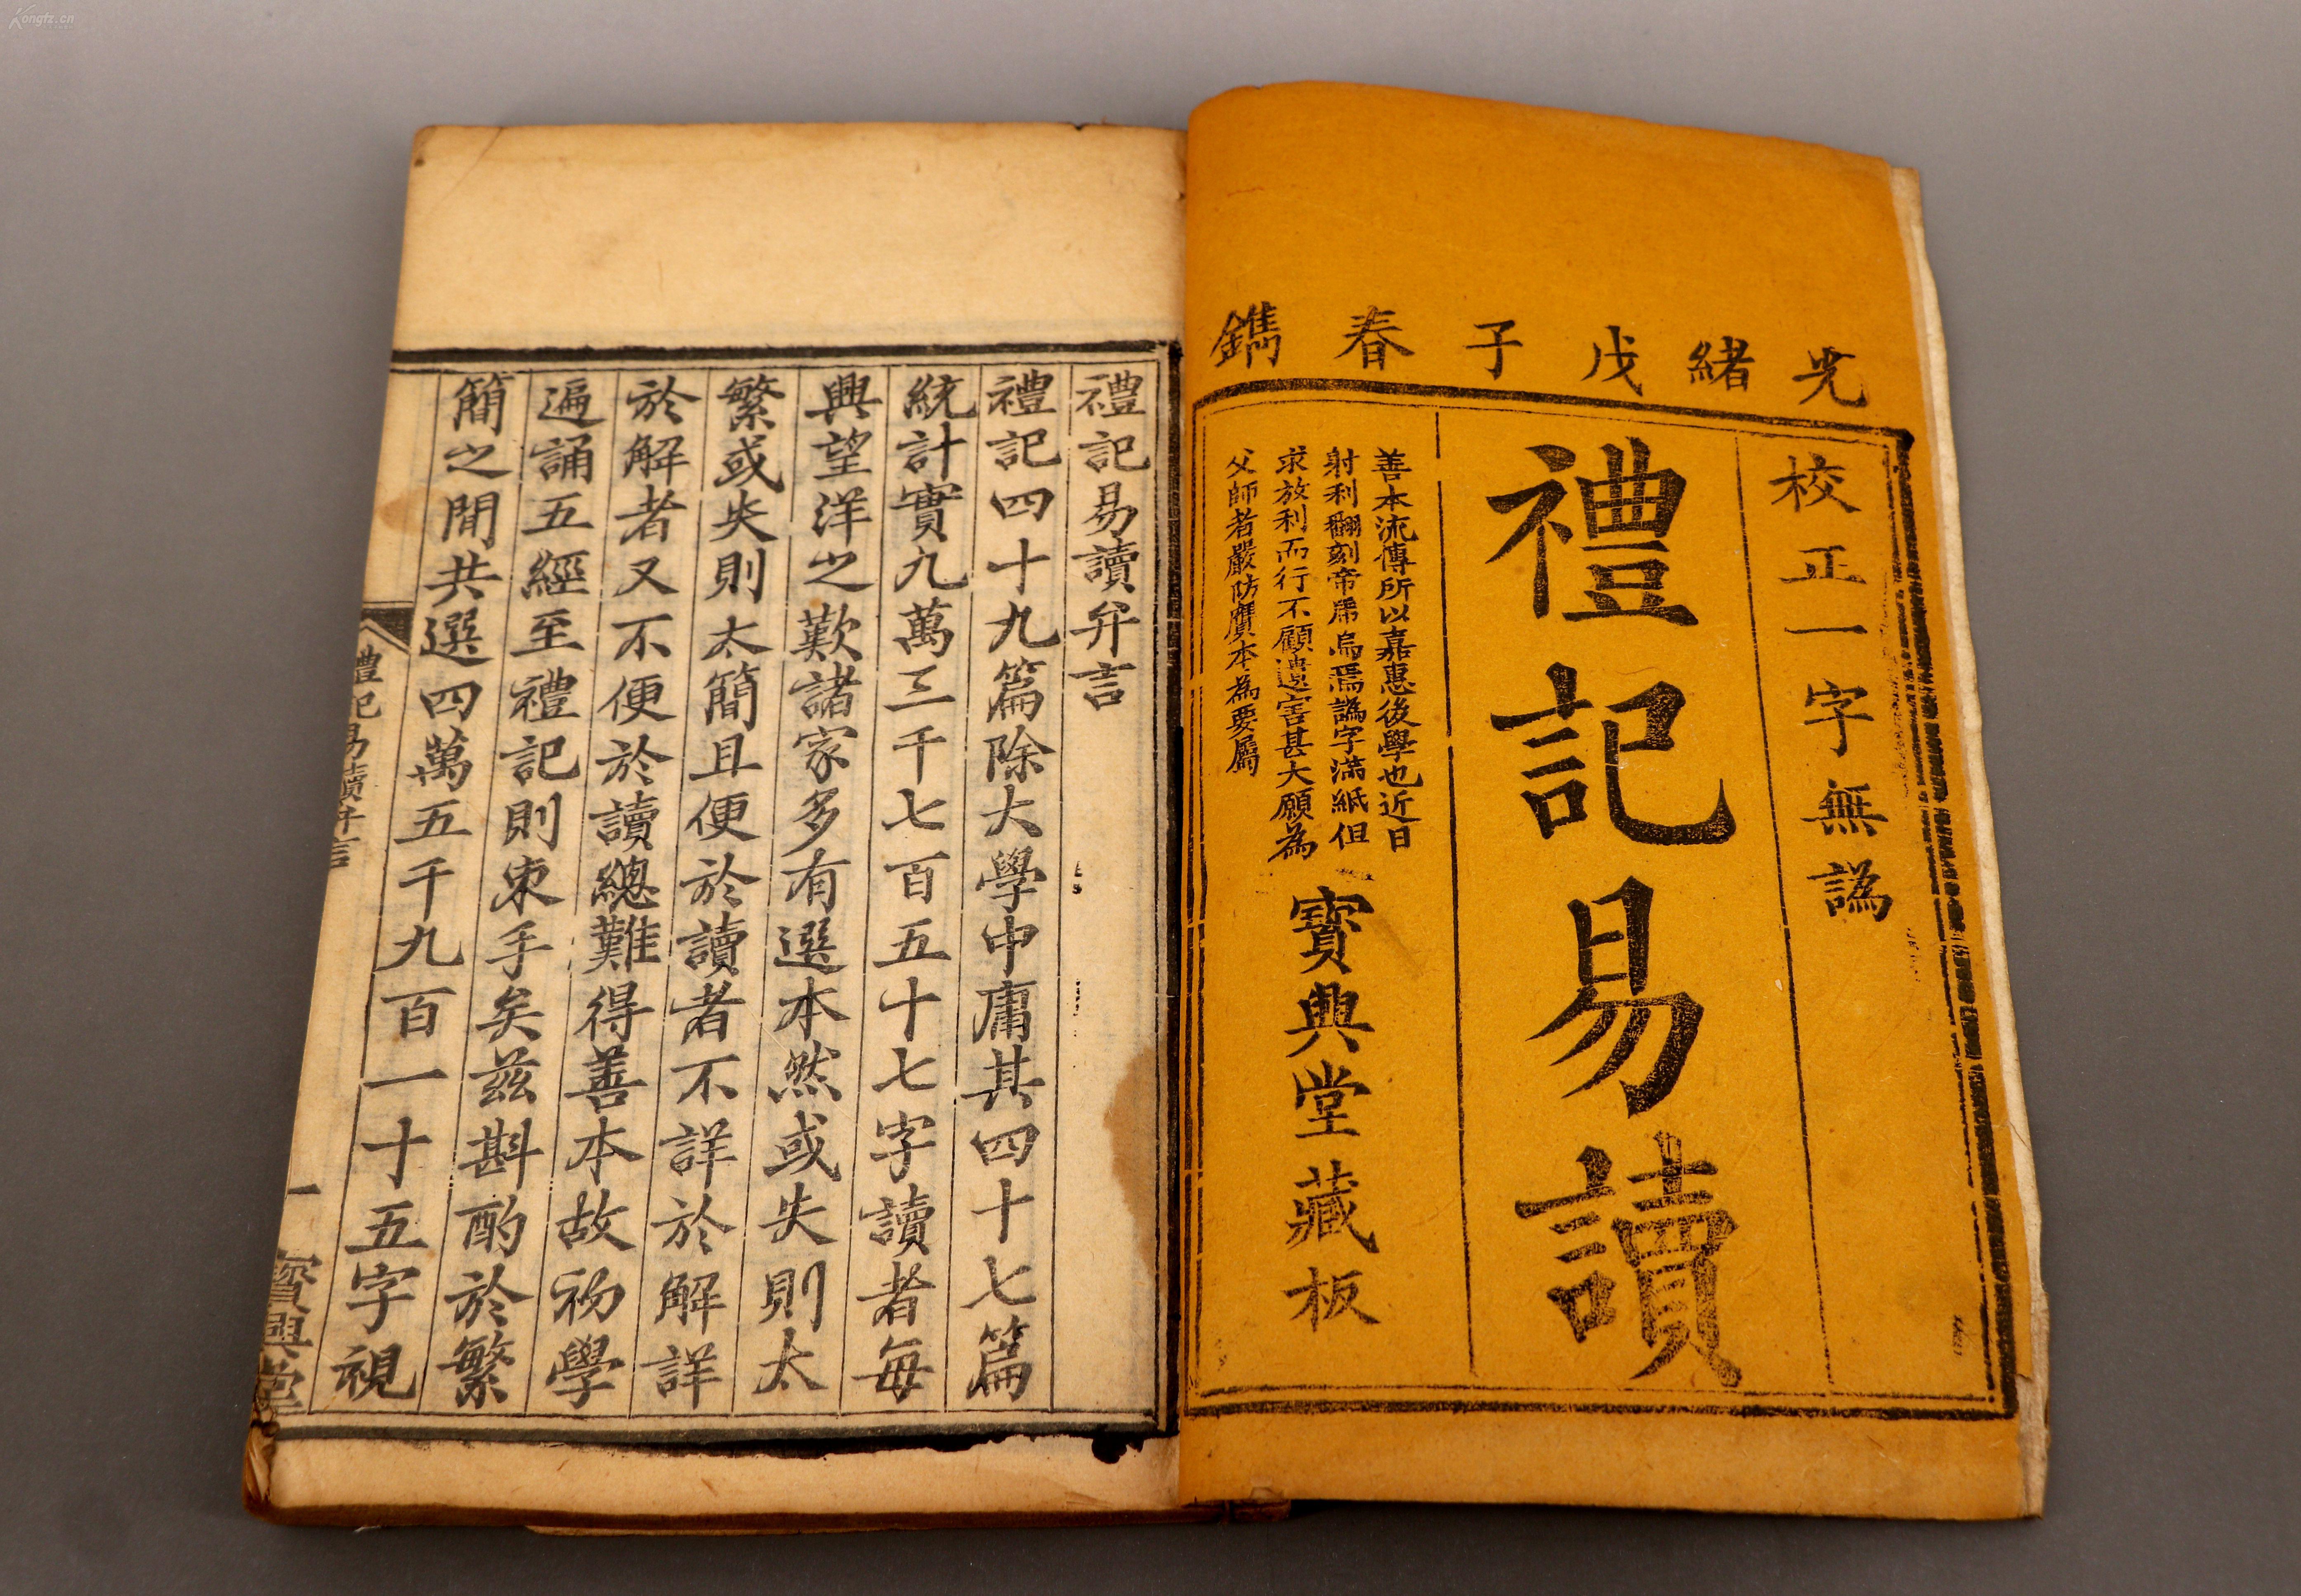 光緒戊子春鐫
校正一字無譌
禮記易讀
善本流傳所以嘉惠後學也近日
射利翻刻帝虎烏焉譌字滿紙但
求放利而行不顧遺害甚大願為
父師者嚴防贋本為要屬
寶興堂藏板
禮記易讀弁言
禮記四十九篇除大學中庸其四十七篇
統計實九萬三千七百五十七字讀者每
興望洋之歎諸家多有選本然或失則太
繁或失則太簡且便於讀者不詳於解詳
於解者又不便於讀總難得善本故初學
遍誦五經至禮記則束手矣茲斟酌於繁
簡之間共選四萬五千九百一十五字視
禮記易讀弁言
一
寶興堂
Kongfz.cn